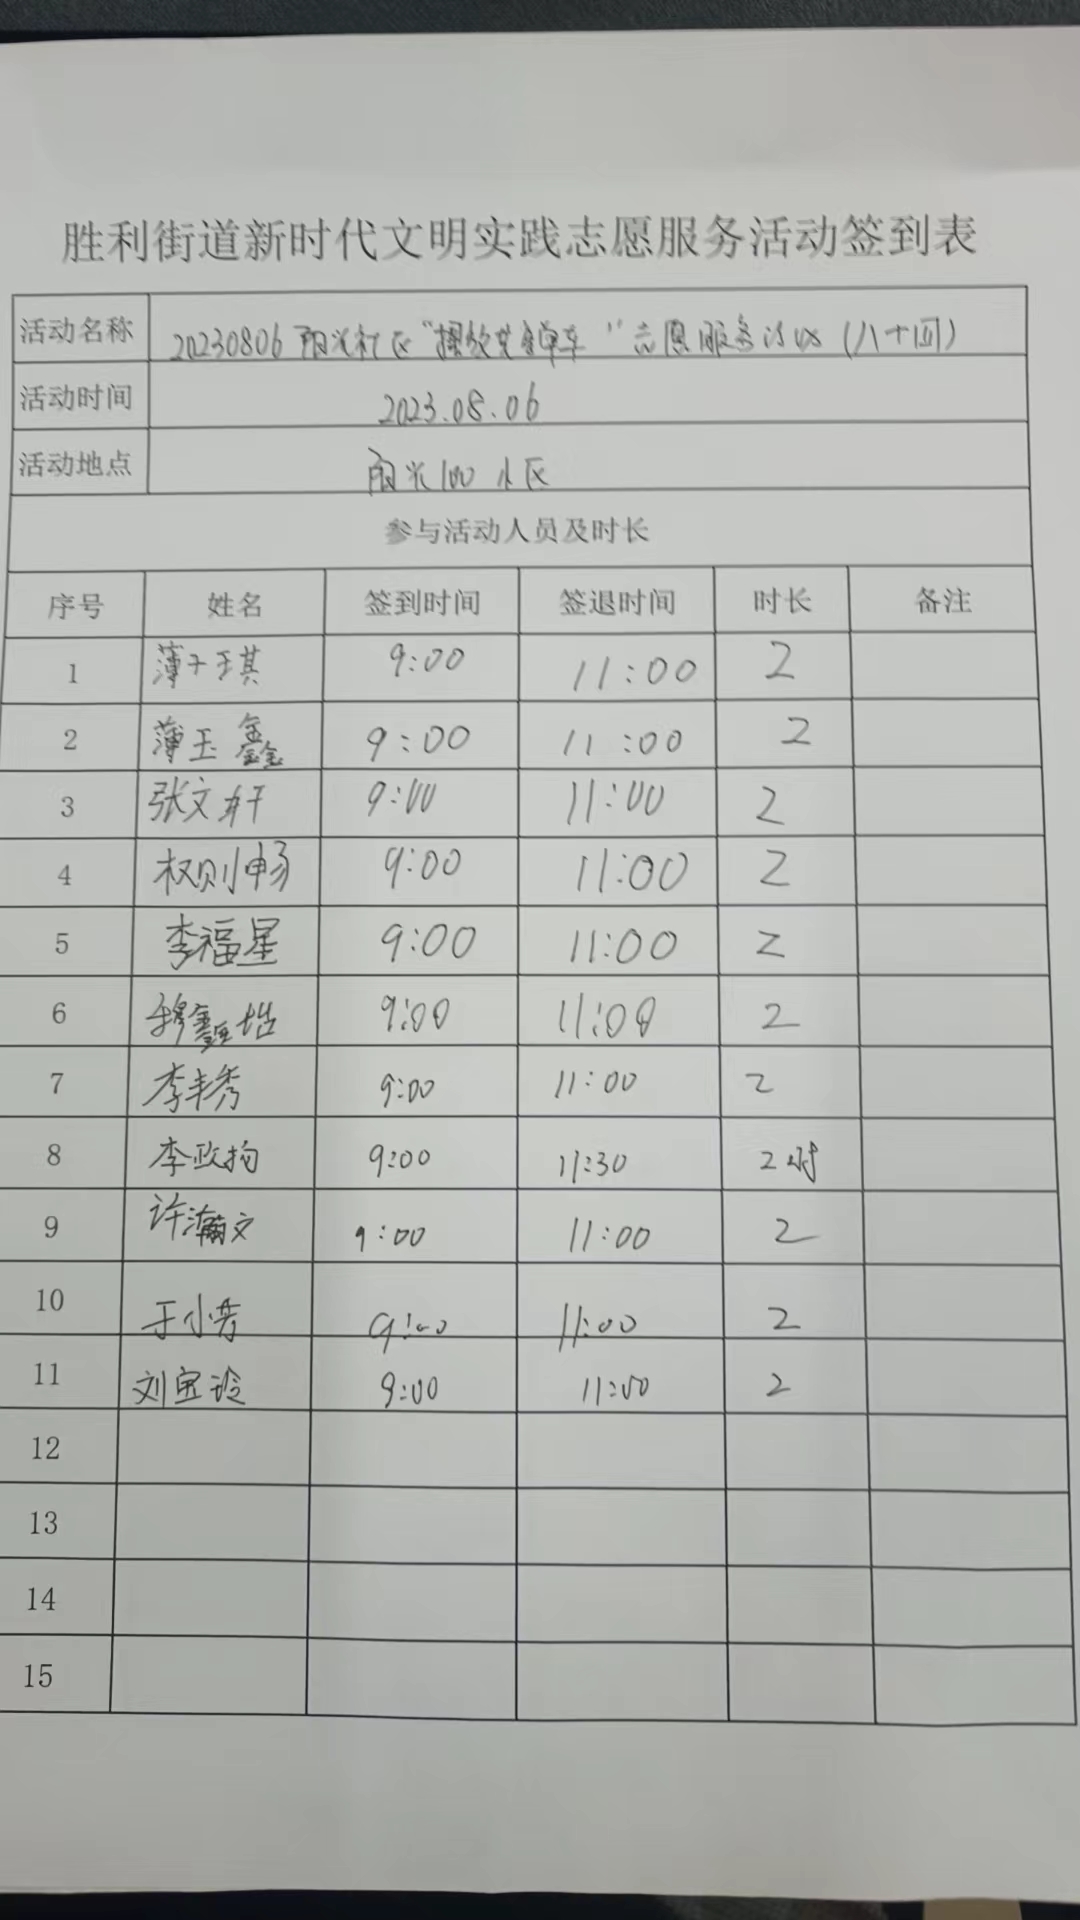 胜利街道新时代文明实践志愿服务活动签到表
活动名称 20230806 阳光社区“摆放共享单车”志愿服务活动（八十四）
活动时间 2023.08.06
活动地点 阳光100小区
参与活动人员及时长
序号 姓名 签到时间 签退时间 时长 备注
1 薄于琪 9:00 11:00 2
2 薄玉鑫 9:00 11:00 2
3 张文轩 9:00 11:00 2
4 权则畅 9:00 11:00 2
5 李福星 9:00 11:00 2
6 穆鑫 9:00 11:00 2
7 李丰秀 9:00 11:00 2
8 李政 9:00 11:30 2时
9 许瀚文 9:00 11:00 2
10 于小芳 9:00 11:00 2
11 刘宝玲 9:00 11:00 2
12
13
14
15